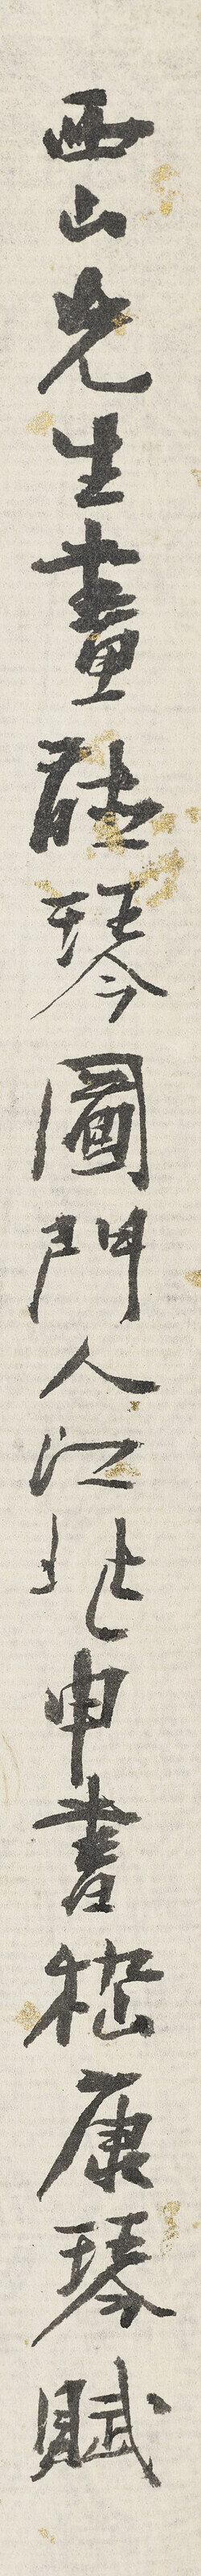 西山先生畫聽琴圖門人江兆申書嵇康琴賦